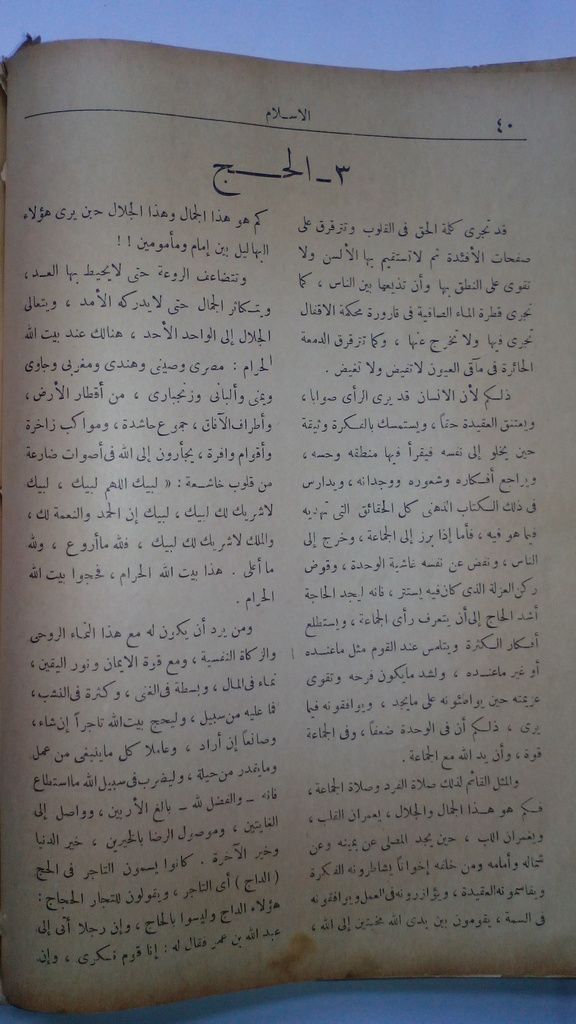 ٤٠
الاسلام
٣ - الحج
قد تجرى كلمة الحق فى القلوب وتترقرق على
صفحات الأفئدة ثم لا تستقيم بها الألسن ولا
تقوى على النطق بها وأن تذيعها بين الناس ، كما
تجرى قطرة الماء الصافية فى قارورة محكمة الاقفال
تجرى فيها ولا تخرج عنها ، وكما تترقرق الدمعة
الحائرة فى مآقى العيون لا تفيض ولا تغيض .
ذلكم لأن الانسان قد يرى الرأى صوابا ،
ويعتنق العقيدة حقاً ، ويستمسك بالفكرة وثيقة
حين يخلو إلى نفسه فيقرأ فيها منطقه وحسه ،
ويراجع أفكاره وشعوره ووجدانه ، ويدارس
فى ذلك الكتاب الذهنى كل الحقائق التى تهديه
فيما هو فيه ، فأما إذا برز إلى الجماعة ، وخرج إلى
الناس ، ونفض عن نفسه غاشية الوحدة ، وقوض
ركن العزلة الذى كان فيه يستتر ، فانه ليجد الحاجة
أشد الحاج إلى أن يتعرف رأى الجماعة ، ويستطلع
أفكار الكثرة ويتلمس عند القوم مثل ما عنده
أو غير ما عنده ، ولشد ما يكون فرحه وتقوى
عزيمته حين يواطئونه على ما يجد ، ويوافقونه فيما
يرى ، ذلكم أن فى الوحدة ضعفاً ، وفى الجماعة
قوة ، وأن يد الله مع الجماعة .
والمثل القائم لذلك صلاة الفرد وصلاة الجماعة ،
فكم هو هذا الجمال والجلال ، يعمران القلب ،
ويغمران اللب ، حين يجد المصلى عن يمينه وعن
شماله وأمامه ومن خلفه إخواناً يشاطرونه الفكرة
ويقاسمونه العقيدة ، ويؤازرونه فى العمل ويوافقونه
فى السمة ، يقومون بين يدى الله مخبتين إلى الله ،
كم هو هذا الجمال وهذا الجلال حين يرى هؤلاء
البهاليل بين إمام ومأمومين !!
وتتضاعف الروعة حتى لا يحيط بها العد ،
ويتكاثر الجمال حتى لا يدركه الأمد ، ويتعالى
الجلال إلى الواحد الأحد ، هنالك عند بيت الله
الحرام : مصرى وصينى وهندى ومغربى وجاوى
ويمنى وألبانى وزنجبارى ، من أقطار الأرض ،
وأطراف الآفاق ، جموع حاشدة ، ومواكب زاخرة
وأقوام وافرة ، يجأرون إلى الله فى أصوات ضارعة
من قلوب خاشعة : « لبيك اللهم لبيك ، لبيك
لاشريك لك لبيك ، لبيك إن الحمد والنعمة لك ،
والملك لاشريك لك لبيك ، فلله ما أروع ، ولله
ما أعلى . هذا بيت الله الحرام ، فحجوا بيت الله
الحرام .
ومن يرد أن يكون له مع هذا النماء الروحى
والزكاة النفسية ، ومع قوة الايمان ونور اليقين ،
نماء فى المال ، وبسطة فى الغنى ، وكثرة فى النشب ،
فما عليه من سبيل ، وليحج بيت الله تاجراً إن شاء ،
وصانعاً إن أراد ، وعاملا كل ما ينبغى من عمل
وما يقدر من حيلة ، وليضرب فى سبيل الله ما استطاع
فانه - والفضل لله - بالغ الأربين ، وواصل إلى
الغايتين ، وموصول الرضا بالخيرين ، خير الدنيا
وخير الآخرة . كانوا يسمون التاجر فى الحج
( الداج ) أى التاجر ، ويقولون للتجار الحجاج :
هؤلاء الداج وليسوا بالحاج ، وإن رجلا أتى إلى
عبد الله بن عمر فقال له : إنا قوم نكرى ، وإن